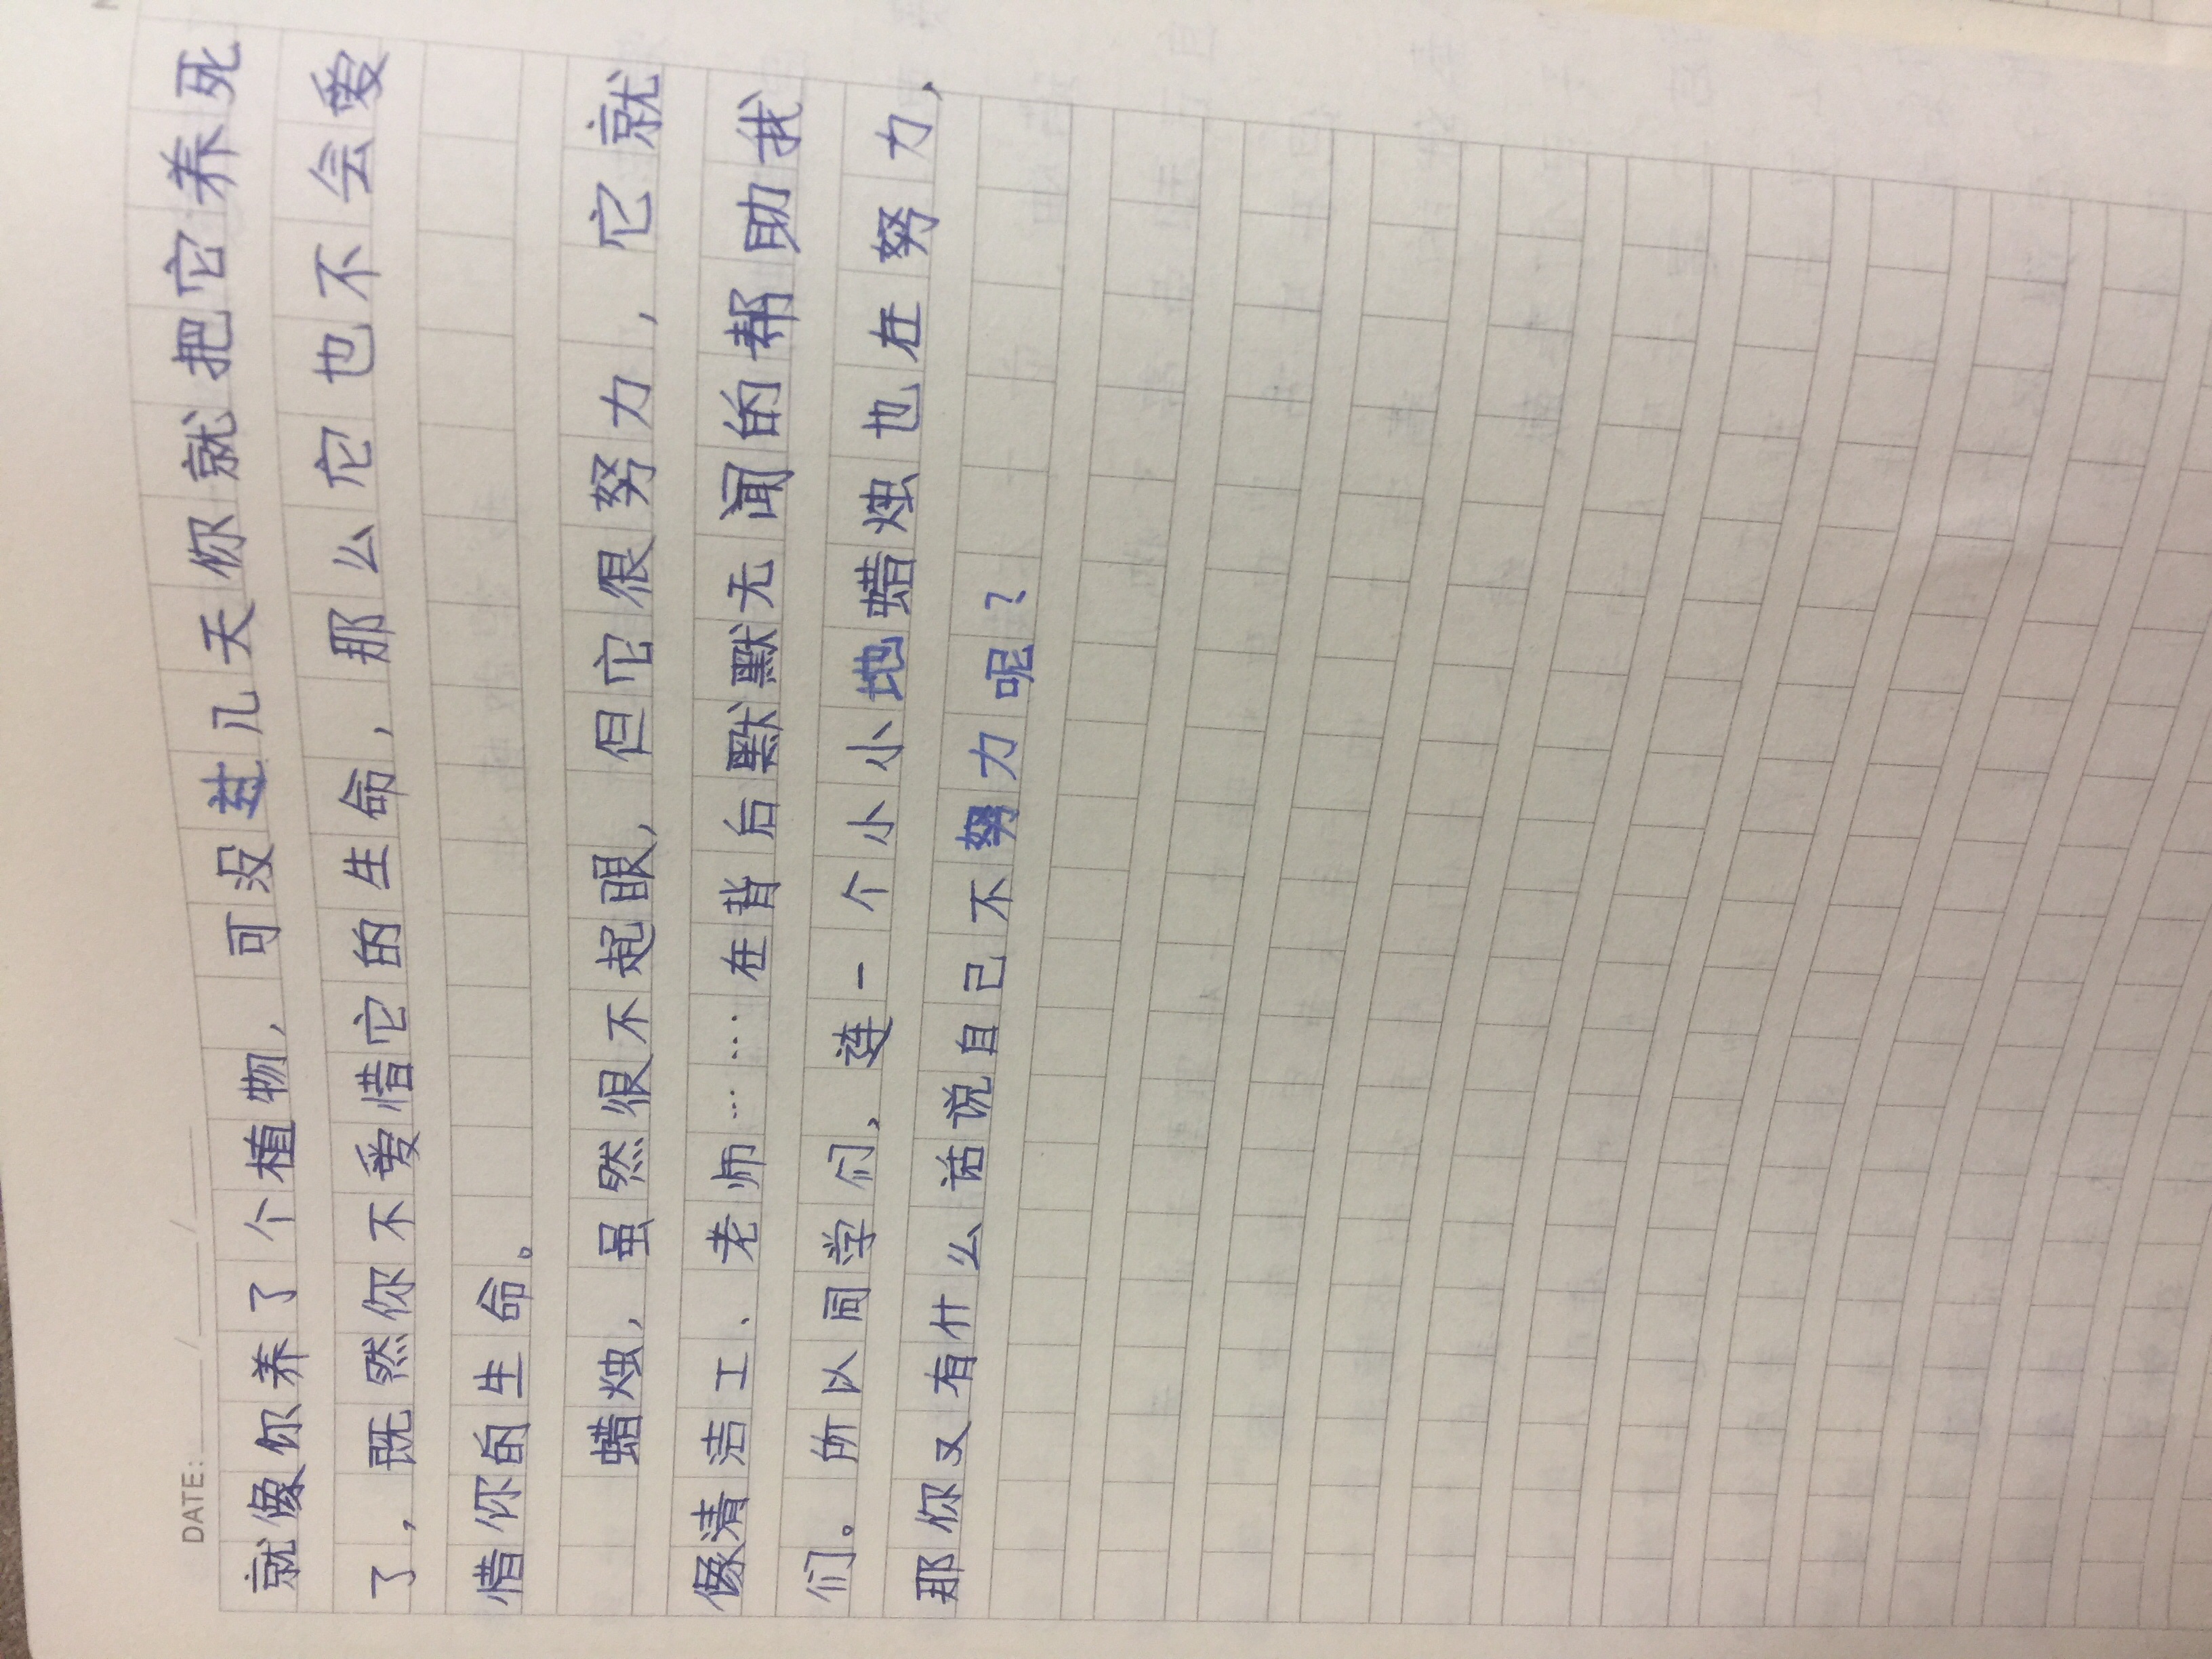 DATE: ___/___/___
就像你养了个植物，可没过几天你就把它养死
了，既然你不爱惜它的生命，那么它也不会爱
惜你的生命。
蜡烛，虽然很不起眼，但它很努力，它就
像清洁工、老师……在背后默默无闻的帮助我
们。所以同学们，连一个小小地蜡烛也在努力，
那你又有什么话说自己不努力呢？